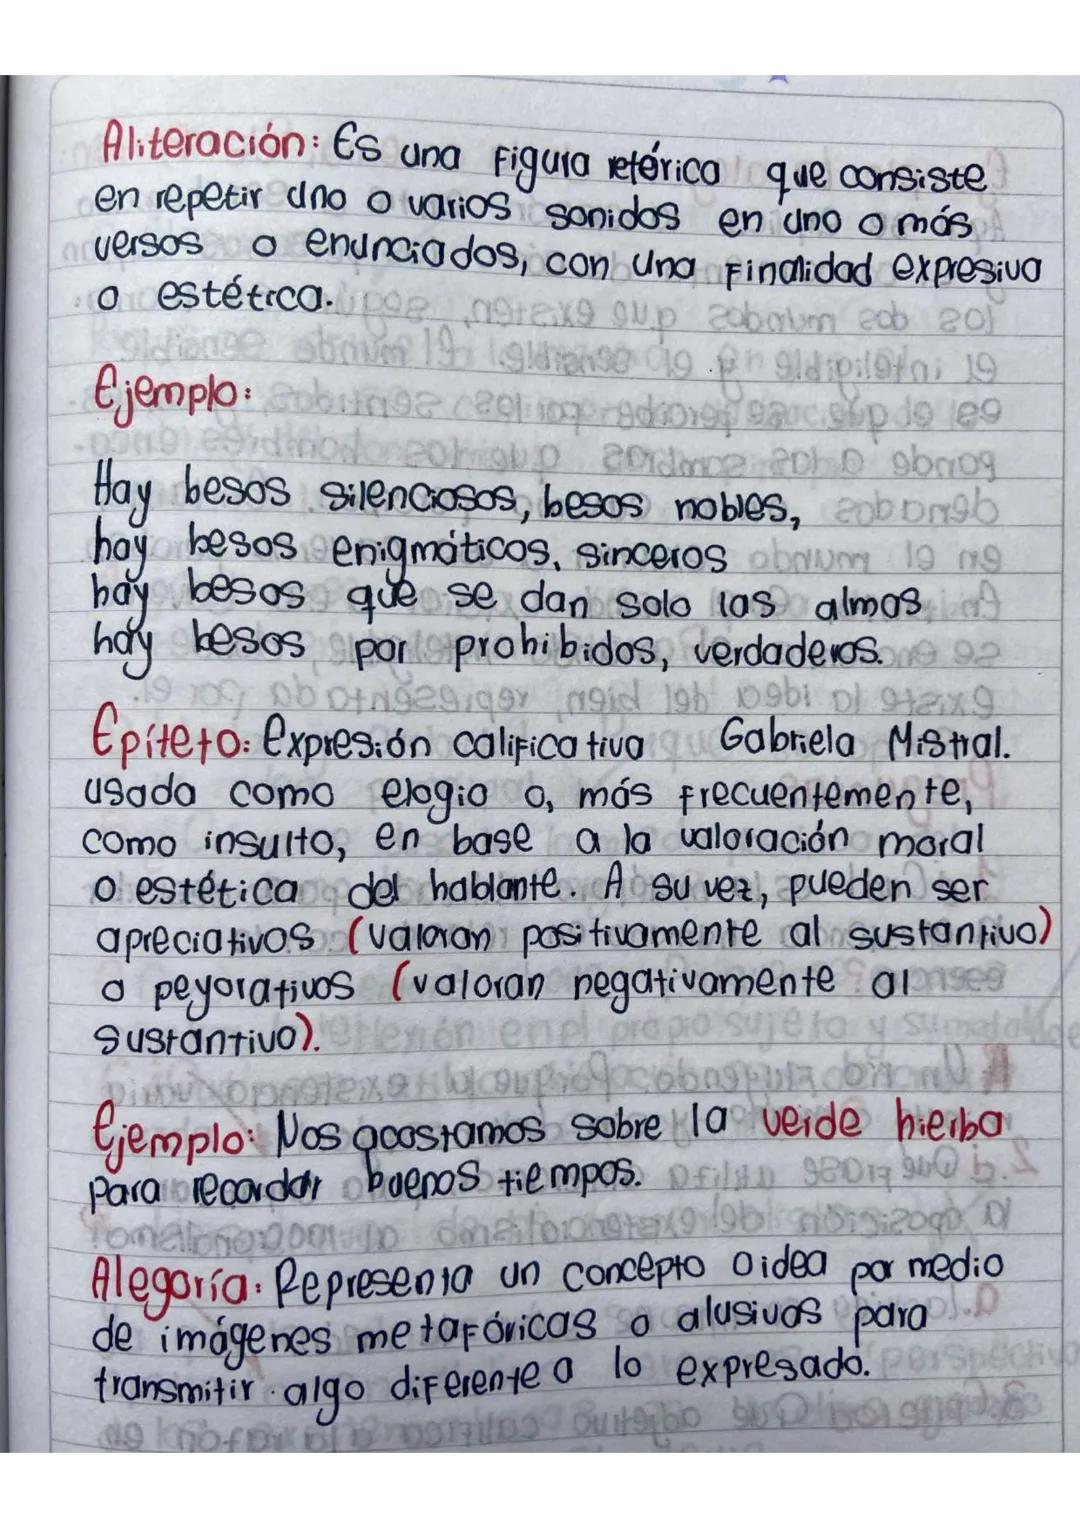 Aliteración: Es una figura retórica que consiste
en repetir uno o varios sonidos en uno o más
versos o enunciados, con una finalidad expresiva
o estética.
Ejemplo:
Hay besos silenciosos, besos nobles,
hay besos enigmáticos, sinceros
hay besos que se dan solo las almas
hay besos por prohibidos, verdaderos.
Epíteto: Expresión calificativa Gabriela Mistral.
usada como elogio o, más frecuentemente,
como insulto, en base a la valoración moral
o estética del hablante. A su vez, pueden ser
apreciativos (valoran positivamente al sustantivo)
o peyorativos (valoran negativamente al
sustantivo).
Ejemplo: Nos acostamos sobre la verde hierba
para recordar buenos tiempos.
Alegoría: Representa un concepto o idea por medio
de imágenes metafóricas o alusivas para
transmitir algo diferente a lo expresado.